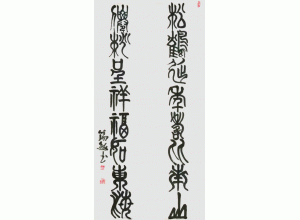 松鶴延年壽比南山
呈祥福如東海